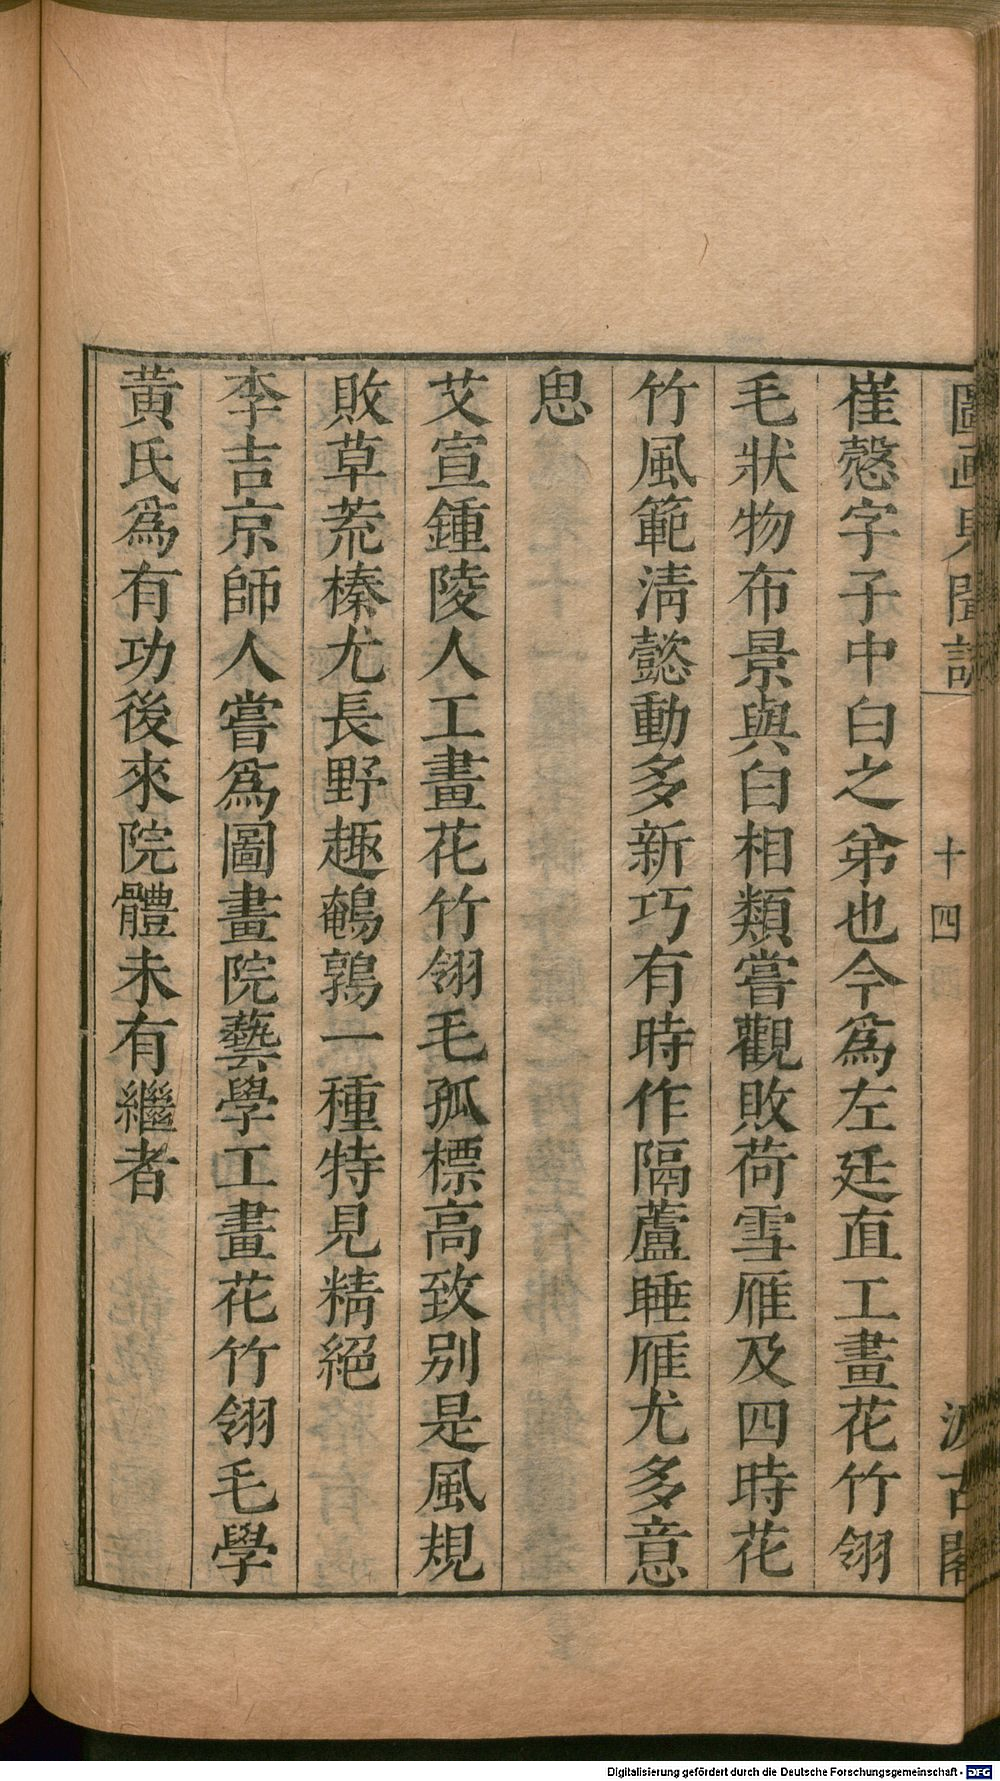 圖畫見聞誌 十四 汲古閣
崔慤字子中白之弟也今爲左廷直工畫花竹翎
毛狀物布景與白相類嘗觀敗荷雪雁及四時花
竹風範清懿動多新巧有時作隔蘆睡雁尤多意
思
艾宣鍾陵人工畫花竹翎毛孤標高致别是風規
敗草荒榛尤長野趣鵪鶉一種特見精絕
李吉京師人嘗爲圖畫院藝學工畫花竹翎毛學
黃氏爲有功後來院體未有繼者
Digitalisierung gefördert durch die Deutsche Forschungsgemeinschaft - DFG